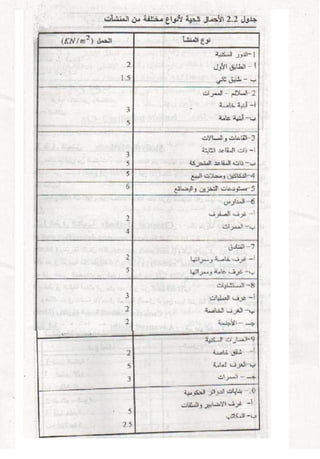 جدول 2.2 الأحمال الحية لأنواع مختلفة من المنشآت
نوع المنشأ الحمل (KN/m²)
1-الدور السكنية
أ - الطابق الأول 2
ب - طابق ثاني 1.5
2-السلالم - الممرات
أ- أبنية خاصة 3
ب- أبنية عامة 5
3-القاعات والصالات
أ- ذات المقاعد الثابتة 3
ب- ذات المقاعد المتحركة 5
4-الدكاكين ومحلات البيع 5
5-مستودعات التخزين والبضائع 6
6-المدارس
أ- غرف الصفوف 2
ب- الممرات 4
7-الفنادق
أ- غرف خاصة وممراتها 2
ب- غرف عامة وممراتها 5
8-المستشفيات
أ- غرف العمليات 3
ب- الغرف الخاصة 2
جـ - الأجنحة 2
9-العمارات السكنية
أ- شقق خاصة 2
ب-الغرف العامة 5
جـ - الممرات 3
10-بنايات الدوائر الحكومية
أ- غرف الاضابير والملفات 5
ب- المكاتب 2.5